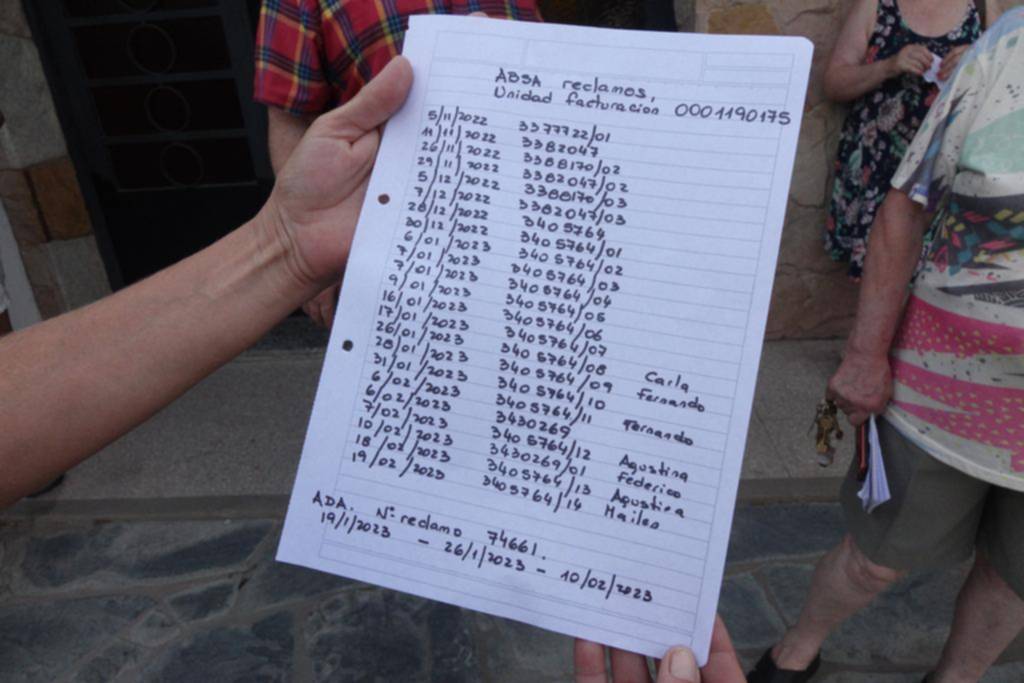 ABSA reclamos,
Unidad facturacion 0001190175
5/11/2022 3377722/01
11/11/2022 3382047
26/11/2022 3388170/02
29/11/2022 3382047/02
5/12/2022 3388170/03
7/12/2022 3382047/03
28/12/2022 3405764
30/12/2022 3405764/01
6/01/2023 3405764/02
7/01/2023 3405764/03
7/01/2023 3405764/04
9/01/2023 3405764/05
16/01/2023 3405764/06
17/01/2023 3405764/07
26/01/2023 3405764/08 Carla
28/01/2023 3405764/09 Fernando
31/01/2023 3405764/10
6/02/2023 3405764/11 Fernando
6/02/2023 3430269
7/02/2023 3405764/12 Agustina
10/02/2023 3430269/01 Federico
18/02/2023 3405764/13 Agustina
19/02/2023 3405764/14 Mailen
ADA. Nº reclamo 74661.
19/1/2023 - 26/1/2023 - 10/02/2023